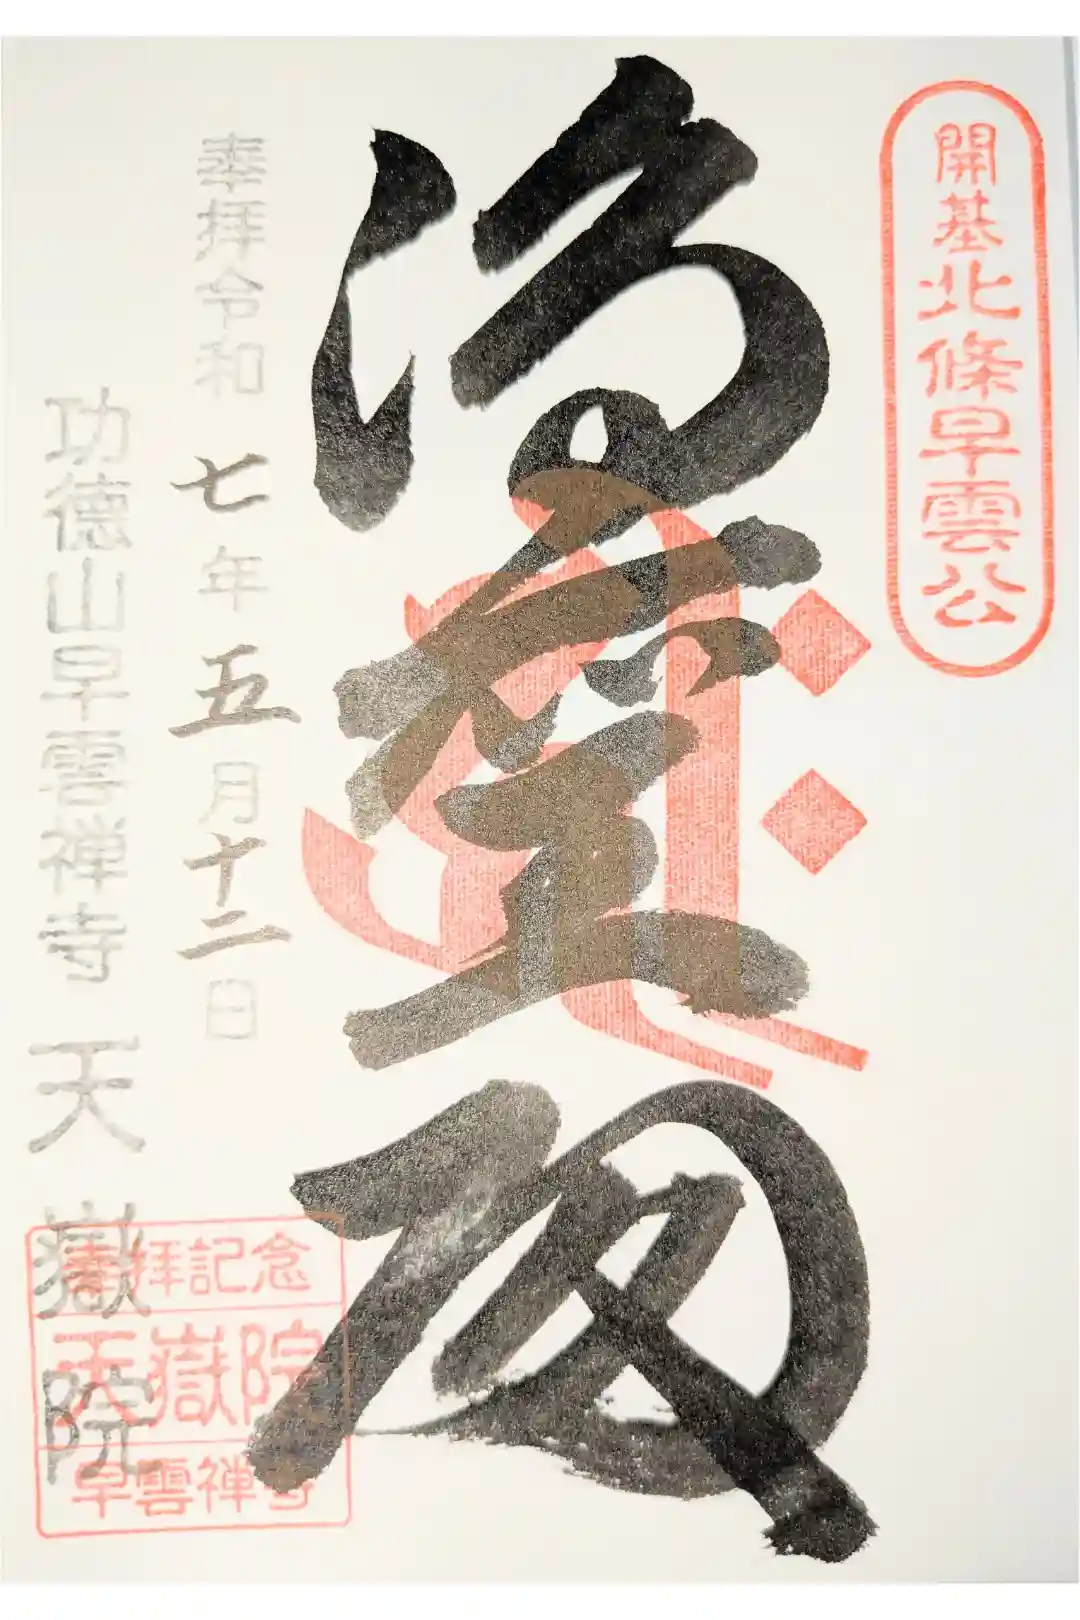 開基北條早雲公
奉拝令和七年五月十二日
功徳山早雲禅寺 天嶽院
拝記念
天嶽院
早雲禅寺